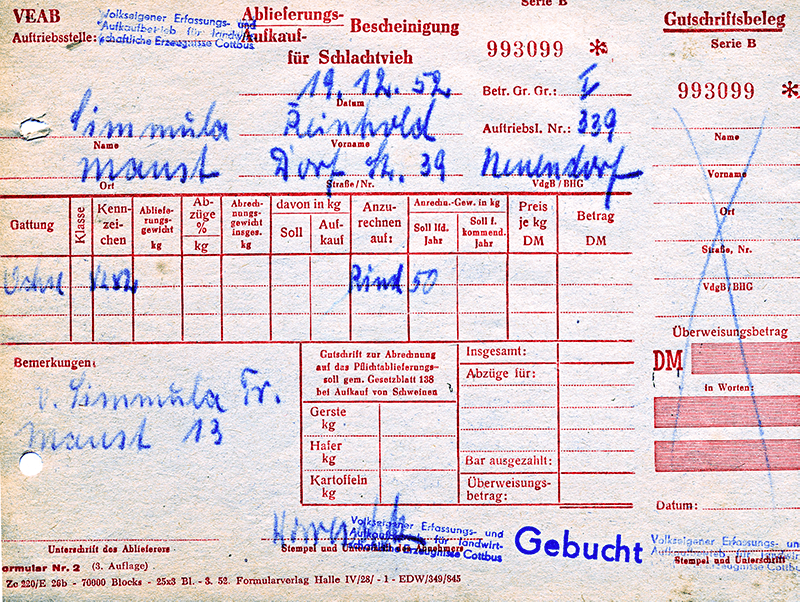 VEAB
Auftriebsstelle:
Volkseigener Erfassungs- und
Aufkaufbetrieb für landwirt-
schaftliche Erzeugnisse Cottbus
Ablieferungs-
Aufkauf-
Bescheinigung
für Schlachtvieh
Serie B
993099 *
19.12.52
Datum
Betr. Gr. Gr.: I
Simmula Reinhold
Name Vorname
Auftriebsl. Nr.: 339
Maust Dorf Str. 39 Neuendorf
Ort Straße/Nr. VdgB/BHG
Gattung Klasse Kennzei-
chen Abliefe-
rungs-
gewicht
kg Ab-
züge
%
kg Abrech-
nungs-
gewicht
insges.
kg davon in kg
Soll Auf-
kauf Anzu-
rechnen
auf: Anrechn.-Gew. in kg
Soll lfd.
Jahr Soll f.
kommend.
Jahr Preis
je kg
DM Betrag
DM
Ochse Rind 50
Bemerkungen:
v. Simmula Fr.
Maust 13
Gutschrift zur Abrechnung
auf das Pflichtablieferungs-
soll gem. Gesetzblatt 138
bei Aufkauf von Schweinen
Gerste
kg
Hafer
kg
Kartoffeln
kg
Insgesamt:
Abzüge für:
Bar ausgezahlt:
Überweisungs-
betrag:
Volkseigener Erfassungs- und
Aufkaufbetrieb für landwirt-
schaftliche Erzeugnisse Cottbus
Gebucht
Unterschrift des Ablieferers
Stempel und Unterschrift des Abnehmers
Formular Nr. 2 (3. Auflage)
Zc 220/E 26b - 70000 Blocks - 25x3 Bl. - 3. 52. Formularverlag Halle IV/28/ - 1 - EDW/349/845
Gutschriftsbeleg
Serie B
993099 *
Name
Vorname
Ort
Straße, Nr.
VdgB/BHG
Überweisungsbetrag
DM
in Worten:
Datum:
Volkseigener Erfassungs- und
Aufkaufbetrieb für landwirt-
schaftliche Erzeugnisse Cottbus
Stempel und Unterschrift